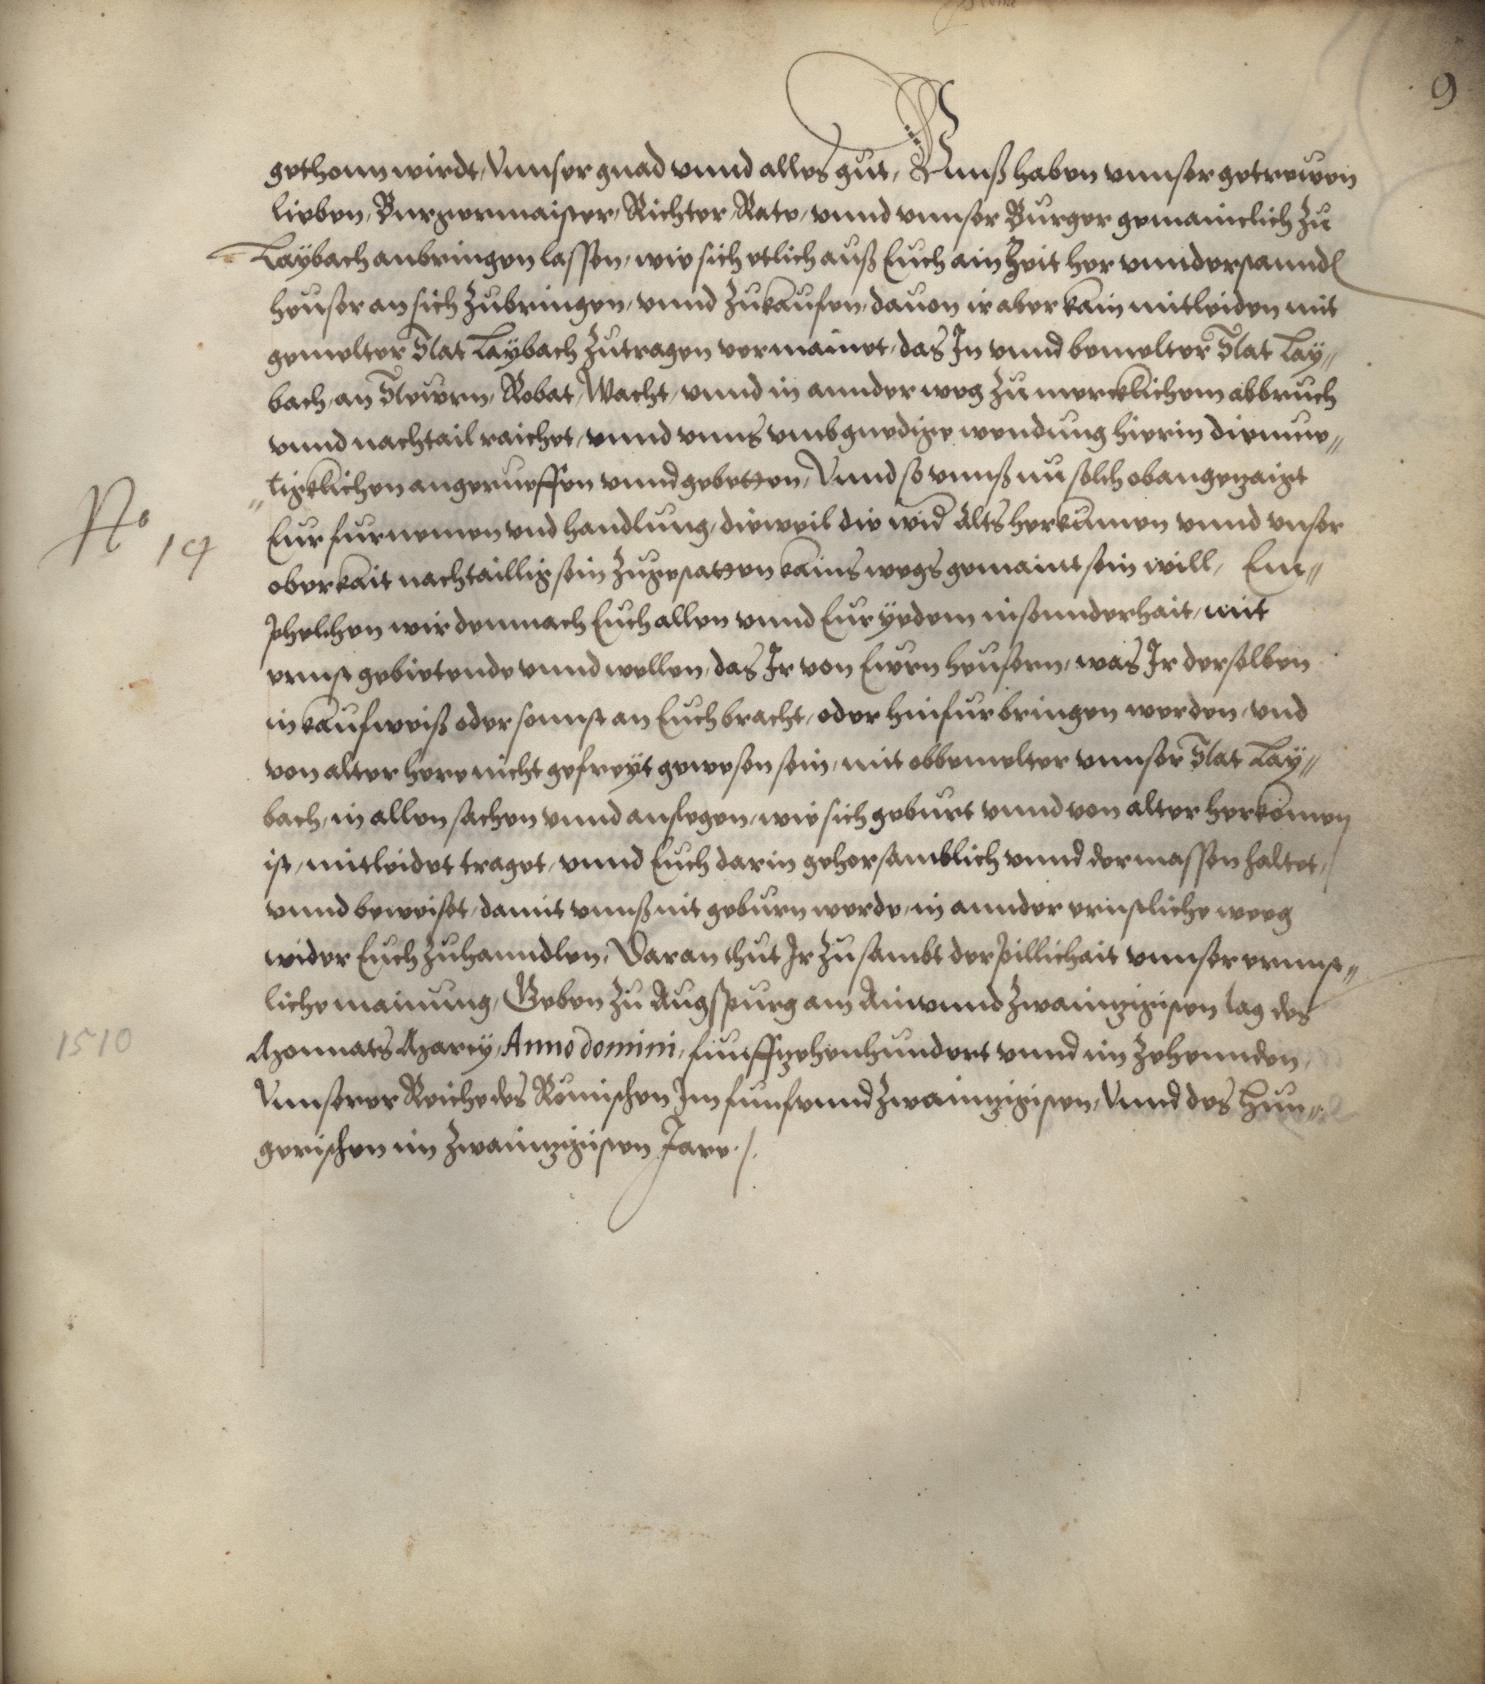 9
gethonn wirdt, Vnnser gnad vnnd alles gut, Vnnß haben vnnser getrewen
lieben, Burgermaister, Richter, Rate, vnnd vnnser Burger gemainclich zu
Laybach anbringen lassen, wie sich etlich auß Euch ain Zeit her vnnderstanndt
heuser an sich zubringen, vnnd zukaufen, dauon ir aber kain mitleiden mit
gemelter Stat Laybach zutragen vermainet, das In vnnd bemelter Stat Lay„
bach, an Stewrn, Robat, Wacht, vnnd in annder weg zu mercklichem abbruch
vnnd nachtail raichet, vnnd vnns vmb gnedige wendung hierin diemue„
„tigklichen angerueffen vnnd gebetten, Vnnd so vnnß nu solch obangezaigt
Eur furnemen vnd handlung, dieweil die wid Alts herkumen vnnd vnser
oberkait nachtaillig sein zugestatten kains wegs gemaint sein will, Em„
phelhen wir demnach Euch allen vnnd Eur yedem insonnderhait, mit
ernst gebietende vnnd wellen, das Ir von Ewrn heusern, was Ir derselben
in kaufweiß oder sonnst an Euch bracht, oder hinfur bringen werden, vnd
von alter here nicht gefreyt gewesen sein, mit obbemelter vnnser Stat Lay„
bach, in allen sachen vnnd anslegen, wie sich geburt vnnd von alter herkomen
ist, mitleidet traget, vnnd Euch darin gehorsamblich vnnd dermassen haltet,
vnnd beweiset, damit vnnß nit geburn werde, in annder ernstliche weeg
wider Euch zuhanndlen, Daran thut Ir zusambt der pillichait vnnser ernnst„
liche mainung, Geben zu Augspurg am Ainvnndzwainzigisten tag des
Monnats Marcy, Anno domini, funffzehenhundert vnnd im Zehennden,
Vnnserer Reiche des Römischen Im funfvnndzwainzigisten, Vnnd des Hun„
gerischen im zwainzigisten Jare ./.
No 14
1510